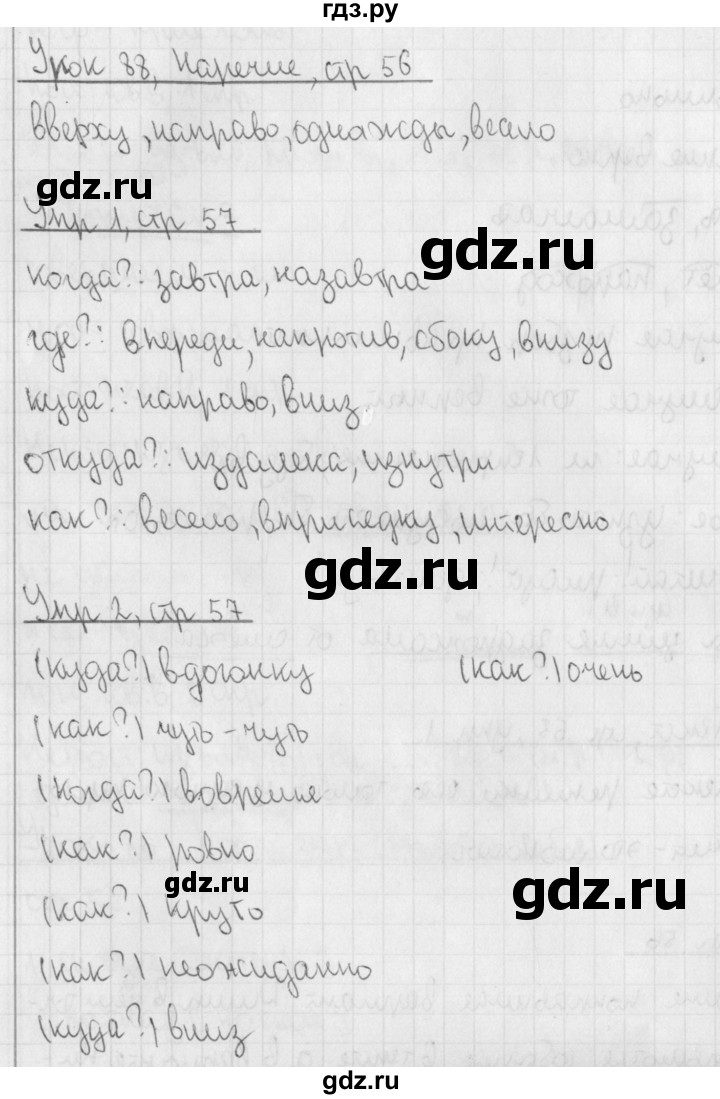 гдз.ру
Урок 88, Наречие, стр 56
вверху, направо, однажды, весело
gdz.ru
Упр 1, стр 57
gdz.ru
когда?: завтра, назавтра
где?: впереди, напротив, сбоку, внизу
куда?: направо, вниз
откуда?: издалека, изнутри
как?: весело, вприсядку, интересно
gdz.ru
Упр 2, стр 57
(куда?) вдогонку (как?) очень
(как?) чуть-чуть
(когда?) вовремя
(как?) ровно
gdz.ru
(как?) круто
gdz.ru
(как?) неожиданно
(куда?) вниз
gdz.ru